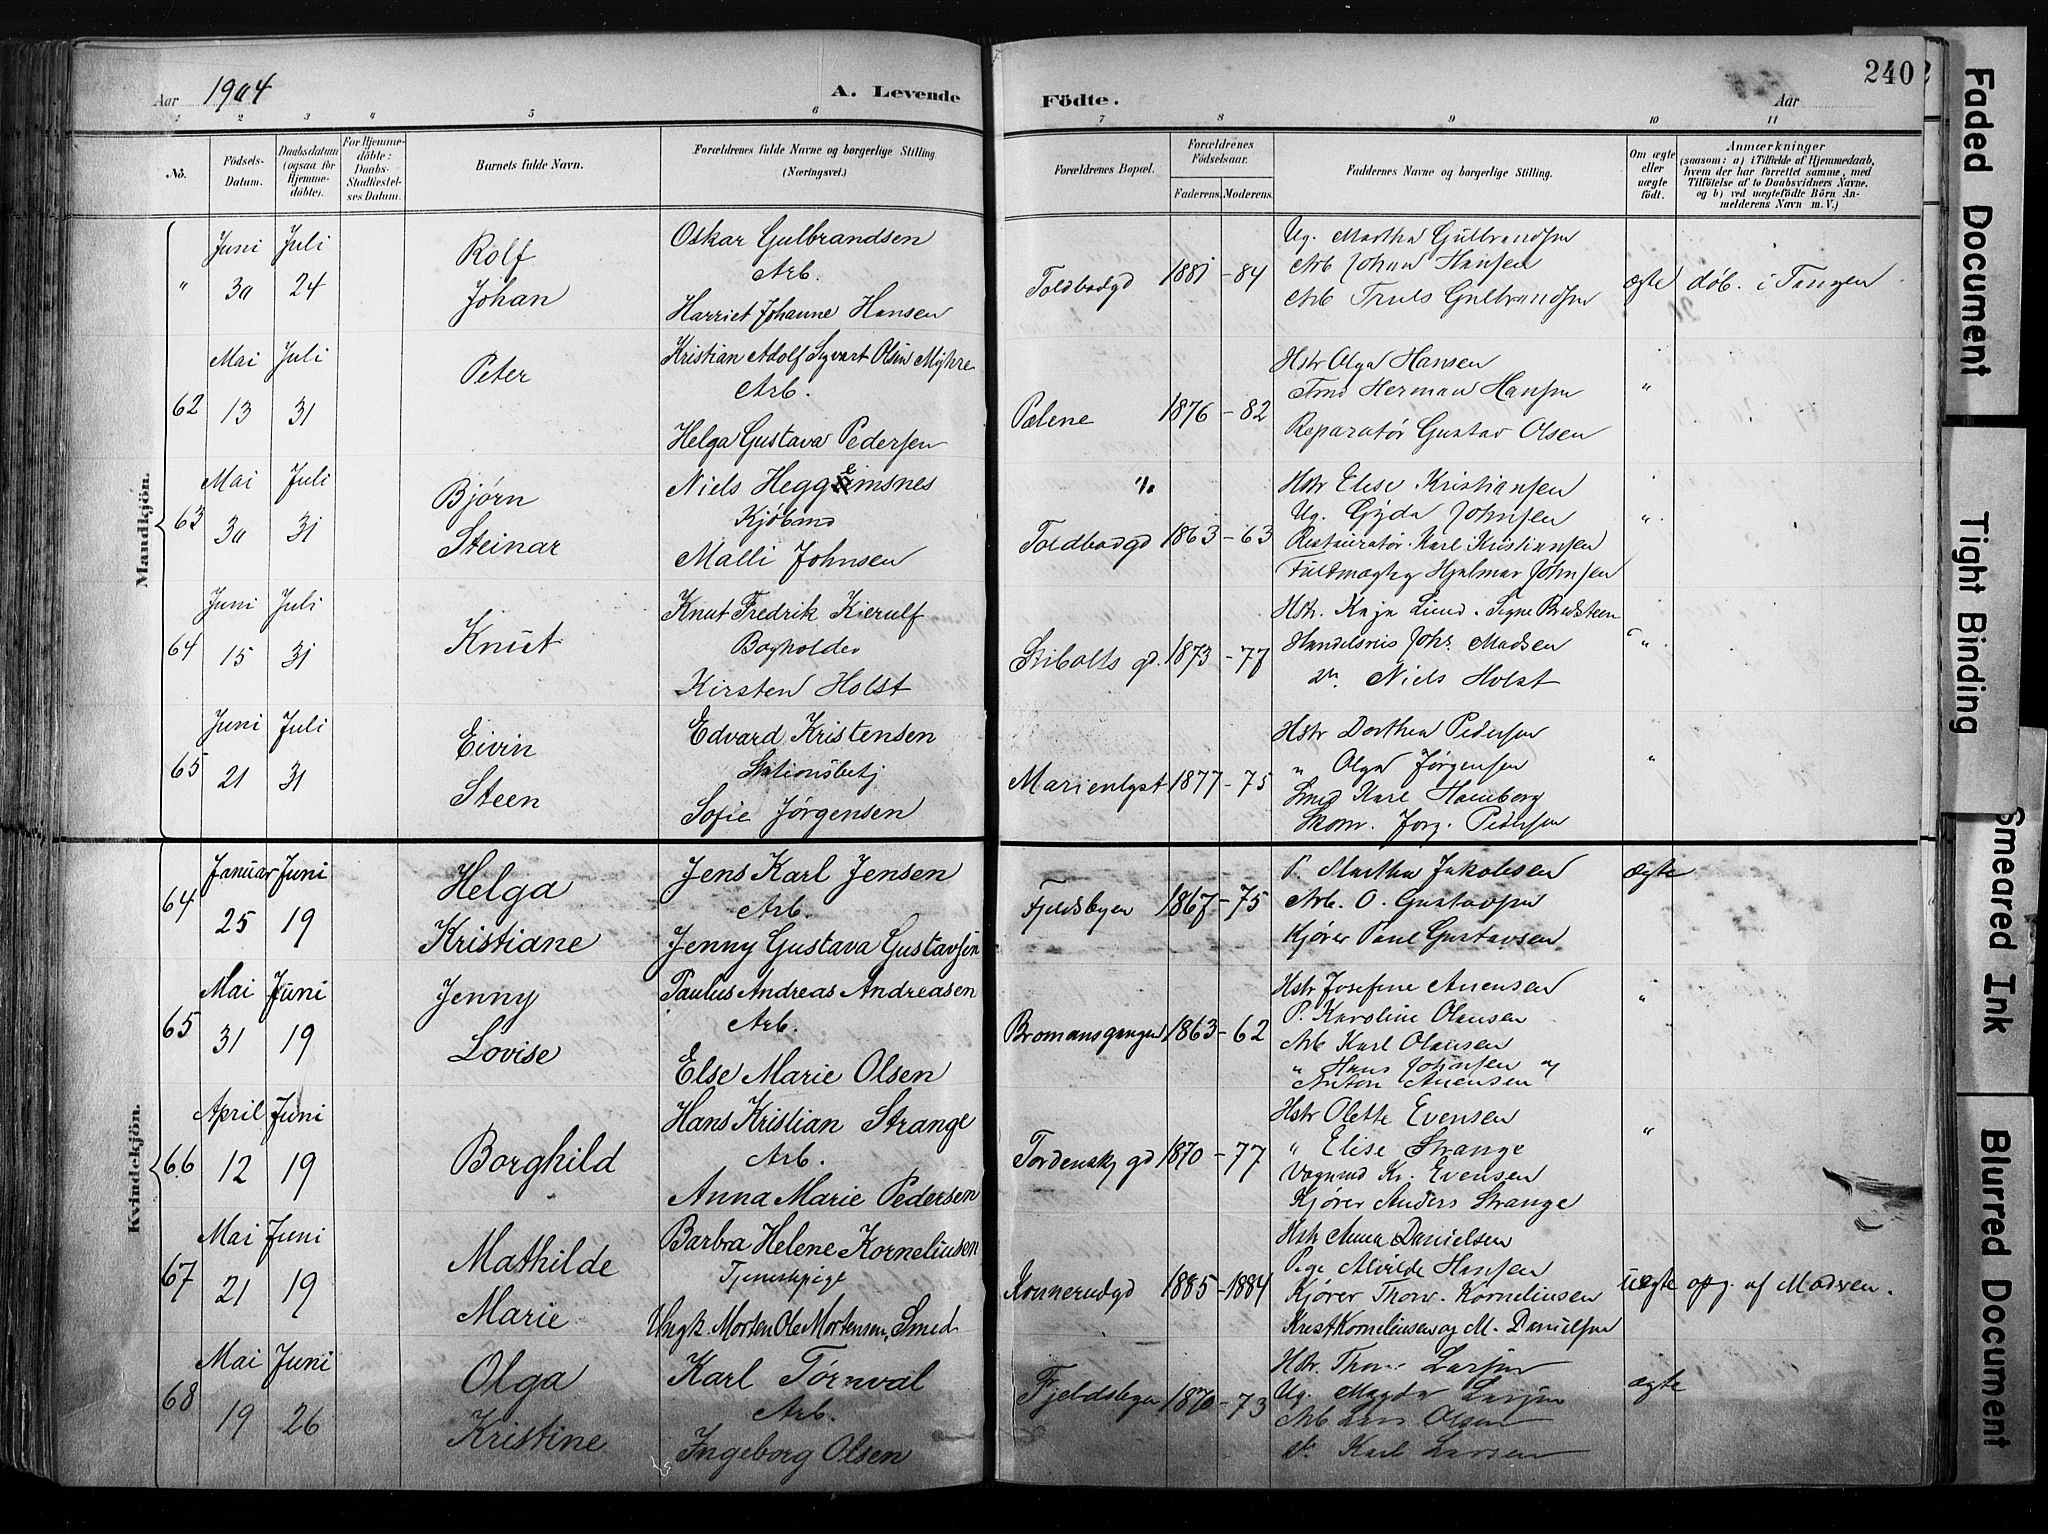 Aar 1904
A. Levende
Födte.
Aar
240
1 2 3 4 5 6 7 8 9 10 11
No.
Födsels-Datum.
Daabsdatum (ogsaa for Hjemmedöbte).
For Hjemmedöbte: Daabs-Stadfæstelses Datum.
Barnets fulde Navn.
Forældrenes fulde Navne og borgerlige Stilling. (Næringsvei.)
Forældrenes Bopæl.
Forældrenes Födselsaar.
Faderens. Moderens.
Faddernes Navne og borgerlige Stilling.
Om ægte eller uægte födt.
Anmærkninger
(saasom: a) i Tilfælde af Hjemmedaab, hvem der har forrettet samme, med Tilföielse af to Daabsvidners Navne, og b) ved uægtefödte Börn Anmelderens Navn m. V.)
Mandkjön.
" Juni 30 Juli 24
Rolf Johan
Oskar Gulbrandsen
Arb.
Harriet Johanne Hansen
Toldbodgd 1881 - 84
Ug. Martha Gulbrandsen
Arb Johan Hansen
Arb Truls Gulbrandsen
ægte
döb. i Tangen
62 Mai 13 Juli 31
Peter
Kristian Adolf Sigvart Olsen Myhre
Arb.
Helga Gustava Pedersen
Pælene 1876 - 82
Hstr Olga Hansen
Herman Hansen
Reparatør Gustav Olsen
"
63 Mai 30 Juli 31
Bjørn Steinar
Niels Heggemsnes
Kjøbmd
Malli Johnsen
Toldbodgd 1863 - 63
Hstr Elise Kristiansen
Ug. Gyda Johnsen
Restauratør Karl Kristiansen
Fuldmægtig Hjalmar Johnsen
"
64 Juni 15 Juli 31
Knut
Knut Fredrik Kierulf
Bogholder
Kirsten Holst
Stibolts gd. 1873 - 77
Hstr. Kaja Lund. Signe Bredsteen
Handelsreis Johs. Madsen
Niels Holst
"
65 Juni 21 Juli 31
Eivin Steen
Edvard Kristensen
Stationsbetj
Sofie Jørgensen
Marienlyst 1877 - 75
Hstr Dorthea Pedersen
" Olga Jørgensen
Smed Karl Hamborg
Skom. Jørg. Pedersen
"
Kvindekjön.
64 Januar 25 Juni 19
Helga Kristiane
Jens Karl Jensen
Arb.
Jenny Gustava Gustavsen
Fjeldsbyen 1867 - 75
P. Martha Jakobsen
Arb. O. Gustavsen
Kjører Paul Gustavsen
ægte
65 Mai 31 Juni 19
Jenny Lovise
Paulus Andreas Andreasen
Arb.
Else Marie Olsen
Bromansgangen 1863 - 62
Hstr Josefine Anensen
P. Karoline Olausen
Arb Karl Olausen
" Hans Johansen og
Anton Anensen
"
66 April 12 Juni 19
Borghild
Hans Kristian Strange
Arb.
Anna Marie Pedersen
Tordensk gd 1870 - 77
Hstr Olette Evensen
" Elise Strange
Vognmd Kr. Evensen
Kjører Anders Strange
"
67 Mai 21 Juni 19
Mathilde Marie
Barbra Helene Kornelinsen
Tjenestepige
Ungk. Morten Ole Mortensen, Smed
Konnerudgd 1885 - 1884
Hstr Anna Danielsen
Pige Alvilde Hansen
Kjører Thorv. Kornelinsen
Krist Kornelinsen og M. Danielsen
uægte
opg. af Madren.
68 Mai 19 Juni 26
Olga Kristine
Karl Tørnval
Arb.
Ingeborg Olsen
Fjeldsbyen 1870 - 73
Hstr. Larsen
Ug. Magda Larsen
Arb Lars Olsen
Karl Larsen
ægte
Faded Document
Tight Binding
Smeared Ink
Blurred Document